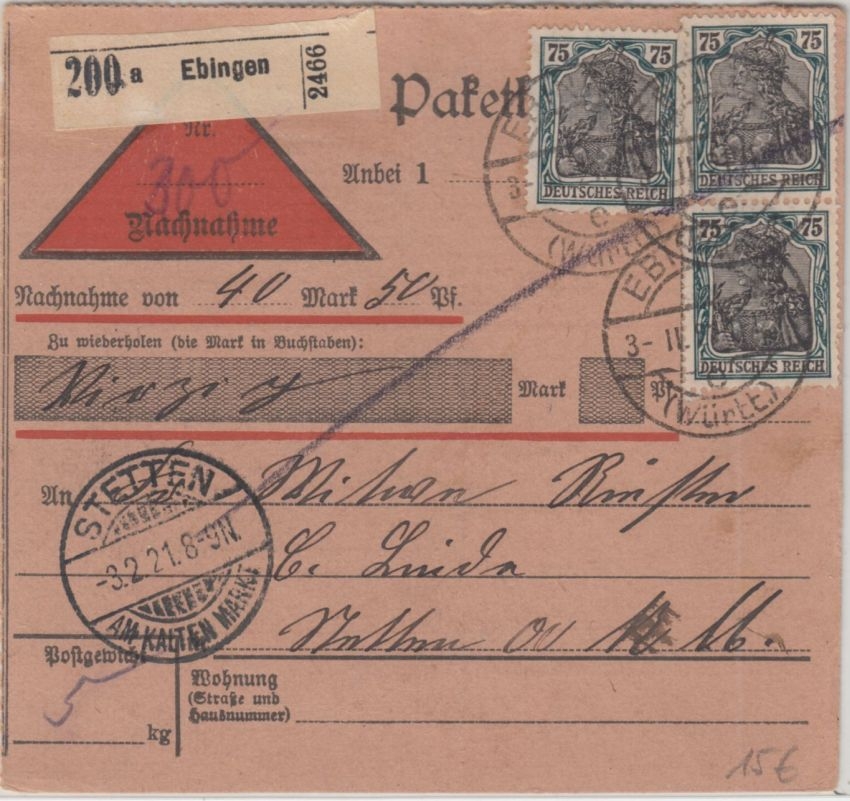 200 a Ebingen 2466
Pakett
75 75
DEUTSCHES REICH
75 75
DEUTSCHES REICH
75 75
DEUTSCHES REICH
(Württ)
Nr.
300
Nachnahme
Anbei 1
Nachnahme von 40 Mark 50 Pf.
Zu wiederholen (die Mark in Buchstaben):
Vierzig Mark Pf
EBI
3- II.
c
(Württ)
STETTEN
-3.2.21.8-9N.
AM KALTEN MARKT
An Witwe
Stetten
Postgewicht
5 kg
Wohnung
(Straße und
Hausnummer)
15€